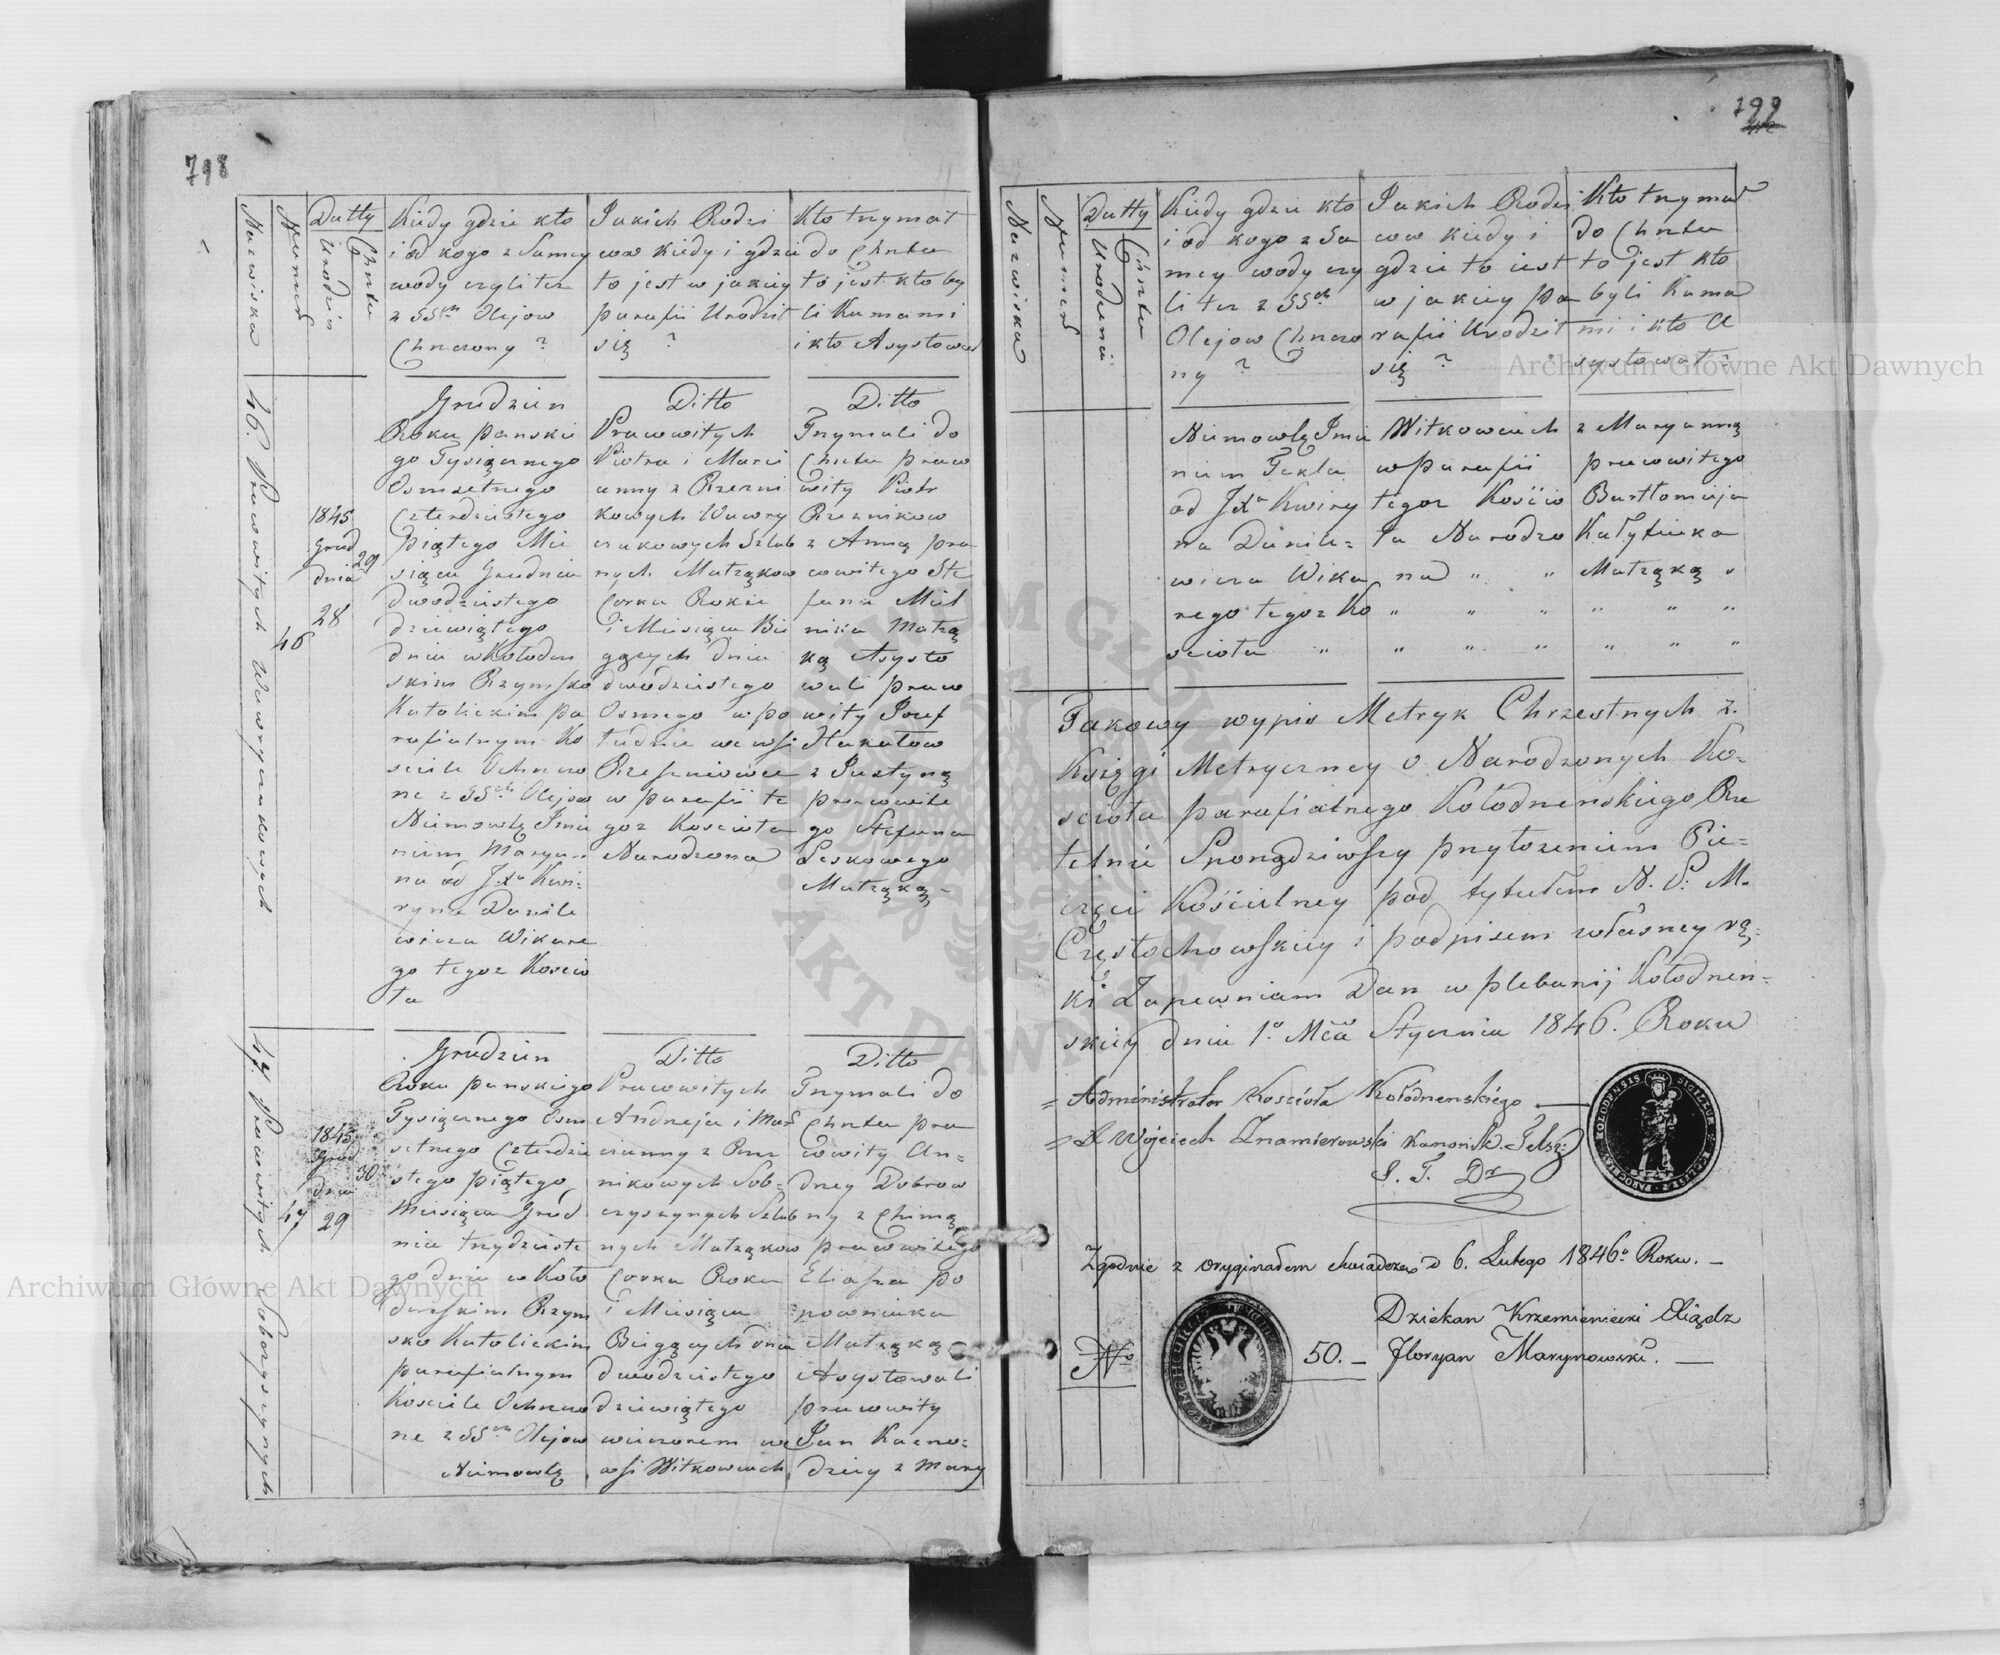 798
Nazwiska
Numer
Datty
Urodzin
Chrztu
Kiedy gdzie kto
i od kogo z Samey
wody czyli tez
z SSch Olejow
Chrzczony ?
Jakich Rodzi
cow kiedy i gdzie
to jest w jakiey
parafii Urodził
się ?
Kto trzymał
do Chrztu
to jest kto by
li Kumami
i kto Asystował
46. Prawowitych Wawryczukowych
46
1845
Grud
dnia 29
28
Grudzien
Roku panskie
go Tysiącznego
Osmsetnego
Czterdziestego
piątego Mie
siąca Grudnia
dwodziestego
dziewiątego
dnia w Kołoden
skim Rzymsko
Katolickim pa
rafialnym Ko
sciele Ochrzczo
ne z SSch Olejow
Niemowlę Imie
niem Marya
na od JXa Kwi=
ryna Danile
wicza Wikare
go tegoz Koscio
ła
Ditto
Prawowitych
Piotra i Mary
anny z Rzezni
kowych Wawry
czukowych Szlub
nych Małząkow
Corka Roku
i Miesiąca Bie
gących dnia
dwodziestego
Osmego w po
łudnie we wsi
Rzeszniowce
w parafii te
goz Kosciola
Narodzona
Ditto
Trzymali do
Chrztu praw
wity Piotr
Rzeznikow
z Anną pra
wowitego Ste
fana Miel
nika Małzą
ką Asysto
wali praw
wity Jozef
Hakałow
z Justyną
prawowite
go Stefana
Leskowego
Małząką
47 Prawowitych Sobczyszynych
47
1845
Grud
dnia 30
29
Grudzien
Roku panskiego
Tysiącznego Osm
setnego Czterdzie
stego piątego
Miesiąca Grud
nia trzydzieste
go dnia w Koło
denskim Rzym
sko Katolickim
parafialnym
Kosciele Ochrzczo
ne z SSch Olejow
Niemowlę
Ditto
Prawowitych
Andreja i Mar
cianny z Rzez
nikowych Sob=
czyszynych Szlub
nych Małząkow
Corka Roku
i Miesiąca
Biegących dnia
dwodziestego
dziewiątego
wieczorem we
wsi Witkowcach
Ditto
Trzymali do
Chrztu pra
wowity An=
drey Dobrow
ny z Chimą
prawowitego
Eliasza po
powniuka
Małząką
Asystowali
prawowity
Jan Kazno=
dziey z Mary
799
Nazwiska
Numer
Datty
Urodzenia
Chrztu
Kiedy gdzie kto
i od kogo z Sa
mey wody czy
li tez z SSch
Olejow Chrzczo
ny ?
Jakich Rodzi
cow kiedy i
gdzie to jest
w jakiey pa
rafii Urodził
się ?
Kto trzymał
do Chrztu
to jest kto
byli Kuma
mi i kto A
systował ?
Niemowlę Imie
niem Tekla
od JXa Kwiry
na Danile=
wicza Wika
rego tegoz Ko
sciola "
Witkowcach
w parafii
tegoz Koscio
ła Narodzo
na " "
" " "
" " "
z Maryanną
prawowitego
Bartłomieja
Kałyniuka
Małząką "
" " "
" " "
Takowy wypis Metryk Chrzestnych z
Księgi Metryczney o Narodzonych Ko=
sciola parafialnego Kołodnenskiego Rze
telnie Sporządziwszy przyłozeniem Pie=
częci Kościelney pod tytułem N. P. M.
Częstochowskiey i podpisem własney rę=
ki Zapewniam Dan w plebanij Kołodnen=
skiey dnia 1o Mca Stycznia 1846. Roku
= Administrator Kościoła Kołodnenskiego
= X Wojciech Znamierowski Kanonik
S. T. Dr
Zgodnie z oryginałem świadcze d 6. Lutego 1846o Roku. —
Dziekan Krzemieniecki Xiądz
No 50. — Floryan Marynowski. —
Archiwum Główne Akt Dawnych
Archiwum Główne Akt Dawnych